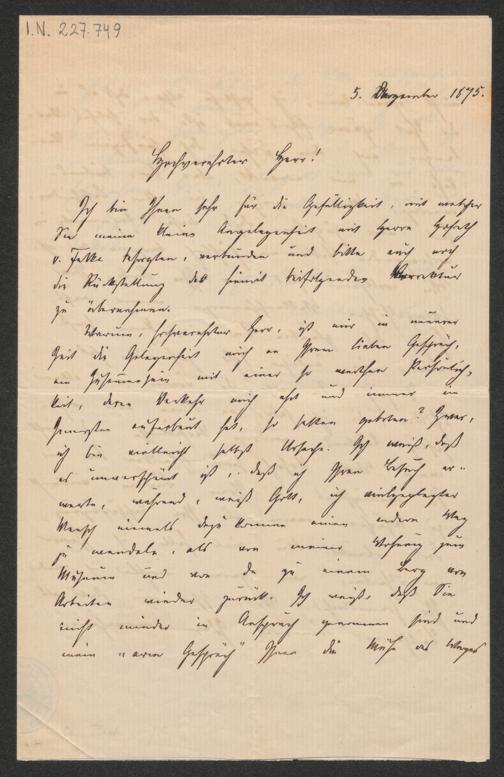 I.N. 227.749
5. Dezember 1875.
Hochverehrter Herr!
Ich bin Ihnen sehr für die Gefälligkeit, mit welcher
Sie meine kleine Angelegenheit mit Herrn Hofrath
v. Falke besorgten, verbunden und bitte auch noch
die Rückstellung des hiemit beifolgenden
zu übernehmen.
Warum, hochverehrter Herr, ist mir in neuerer
Zeit die Gelegenheit mich an Ihrem lieben Gespräch,
am Zusammensein mit einer so werthen Persönlich-
keit, deren Verkehr mich ehrt und immer im
Innersten auferbaut hat, so selten geboten? Zwar,
ich bin vielleicht selbst Ursache. Ich weiß, daß
es unverschämt ist, daß ich Ihren Besuch er-
warte, während, weiß Gott, ich vielgeplagter
Mensch niemals dazu komme einen andern Weg
zu wandeln, als von meiner Wohnung zum
Museum und von da zu einem Berg von
Arbeiten wieder zurück. Ich weiß, daß Sie
nicht minder in Anspruch genommen sind und
mein Gespräch" Ihnen die Mühe des Weges